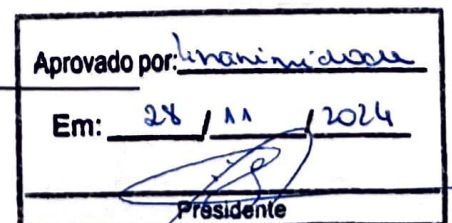 Aprovado por: Unanimidade
Em: 28 / 11 / 2024
Presidente